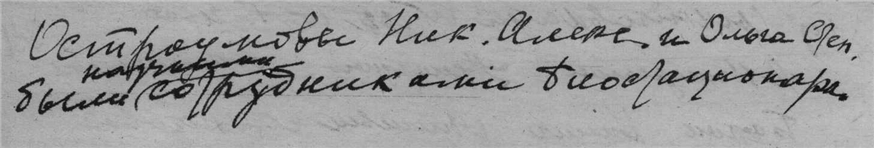 Остроумовы Ник. Алекс. и Ольга Степ.
научными
были сотрудниками биостационара.